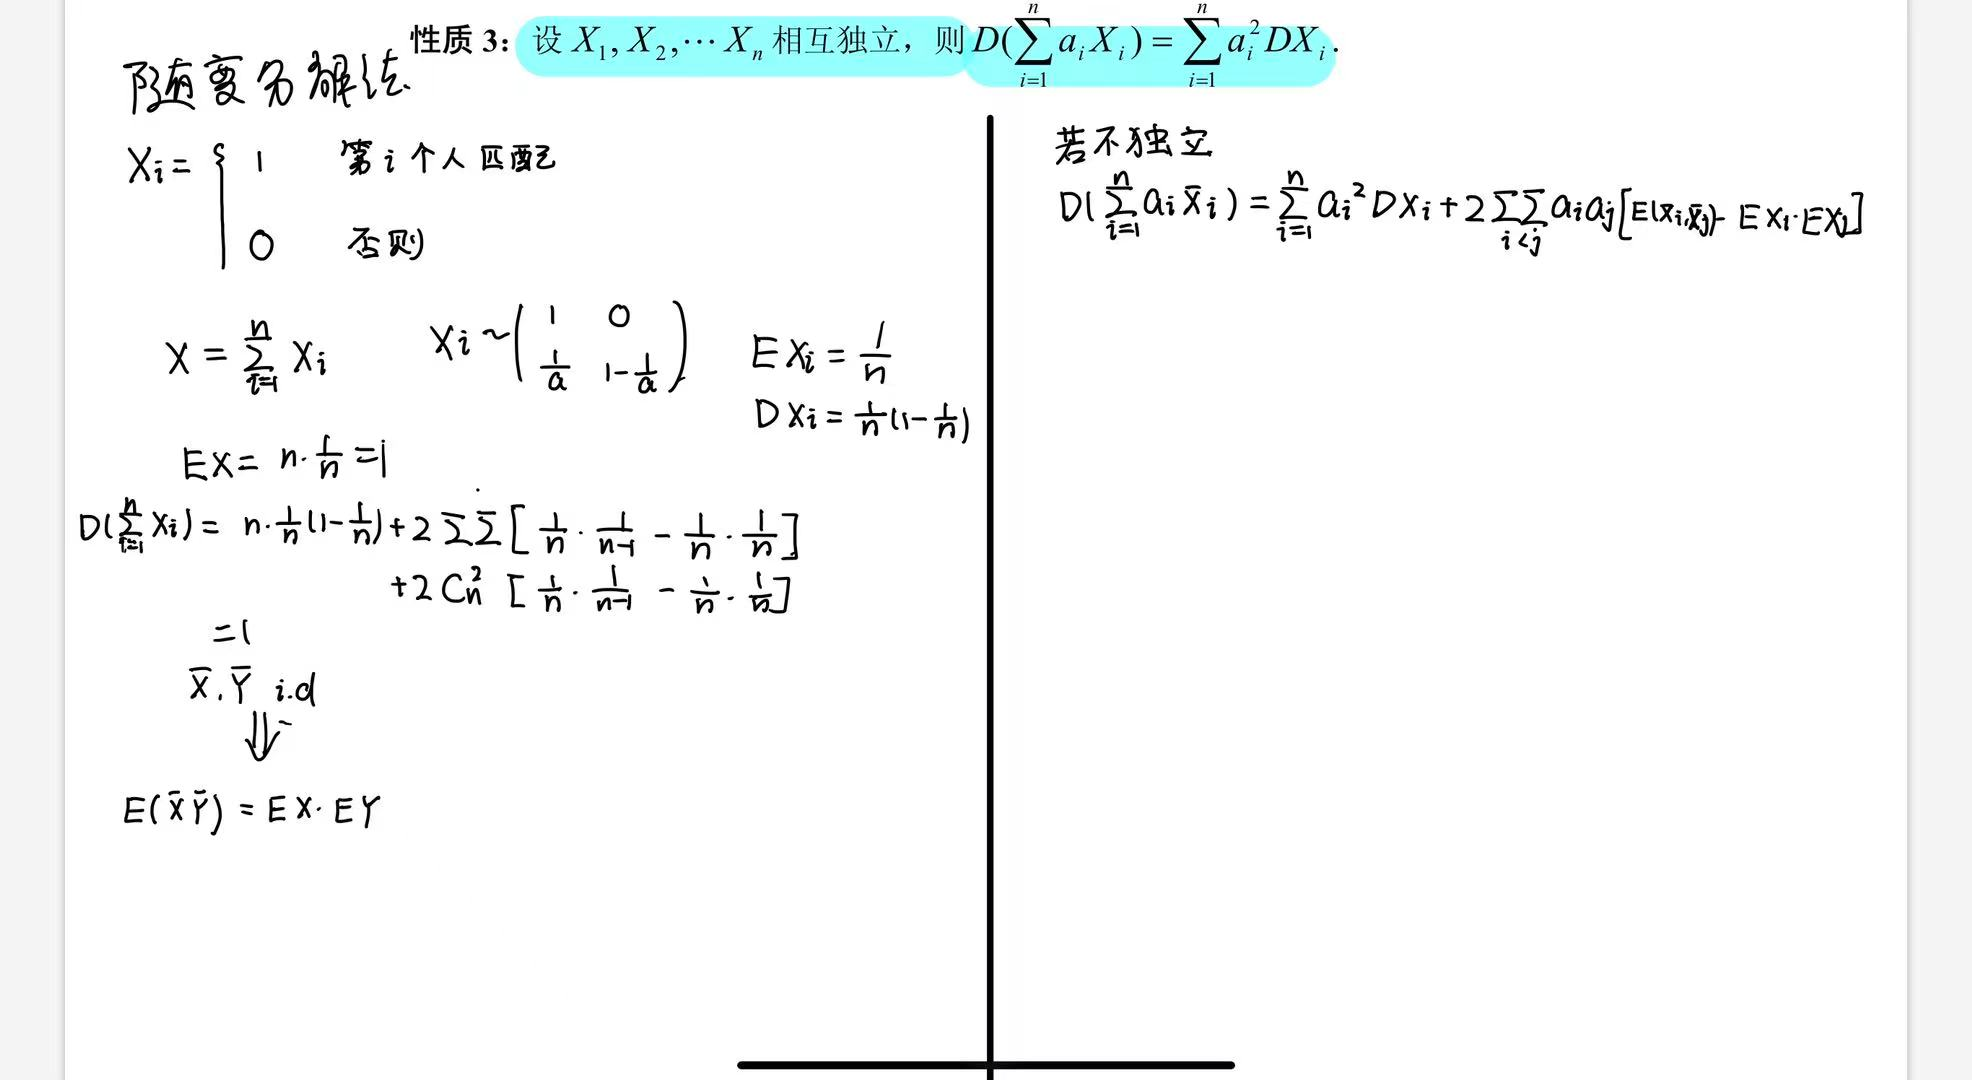 性质 3： 设 X₁, X₂, ⋯ Xₙ 相互独立，则 D(∑_{i=1}^{n} aᵢXᵢ) = ∑_{i=1}^{n} aᵢ²DXᵢ.
随变分解法
Xᵢ = { 1 第 i 个人匹配
0 否则
X = ∑_{i=1}^{n} Xᵢ Xᵢ ~ ( 1 0
1/a 1-1/a ) EXᵢ = 1/n
DXᵢ = 1/n(1-1/n)
EX = n·1/n = 1
D(∑_{i=1}^{n} Xᵢ) = n·1/n(1-1/n) + 2∑∑[1/n·1/(n-1) - 1/n·1/n]
+2Cₙ² [1/n·1/(n-1) - 1/n·1/n]
=1
X̄.Ȳ i.d
⇓
E(X̄Ȳ) = EX·EY
若不独立
D(∑_{i=1}^{n} aᵢX̄ᵢ) = ∑_{i=1}^{n} aᵢ²DXᵢ + 2∑∑_{i<j} aᵢaⱼ[E(X̄ᵢ,X̄ⱼ) - EXᵢ·EXⱼ]